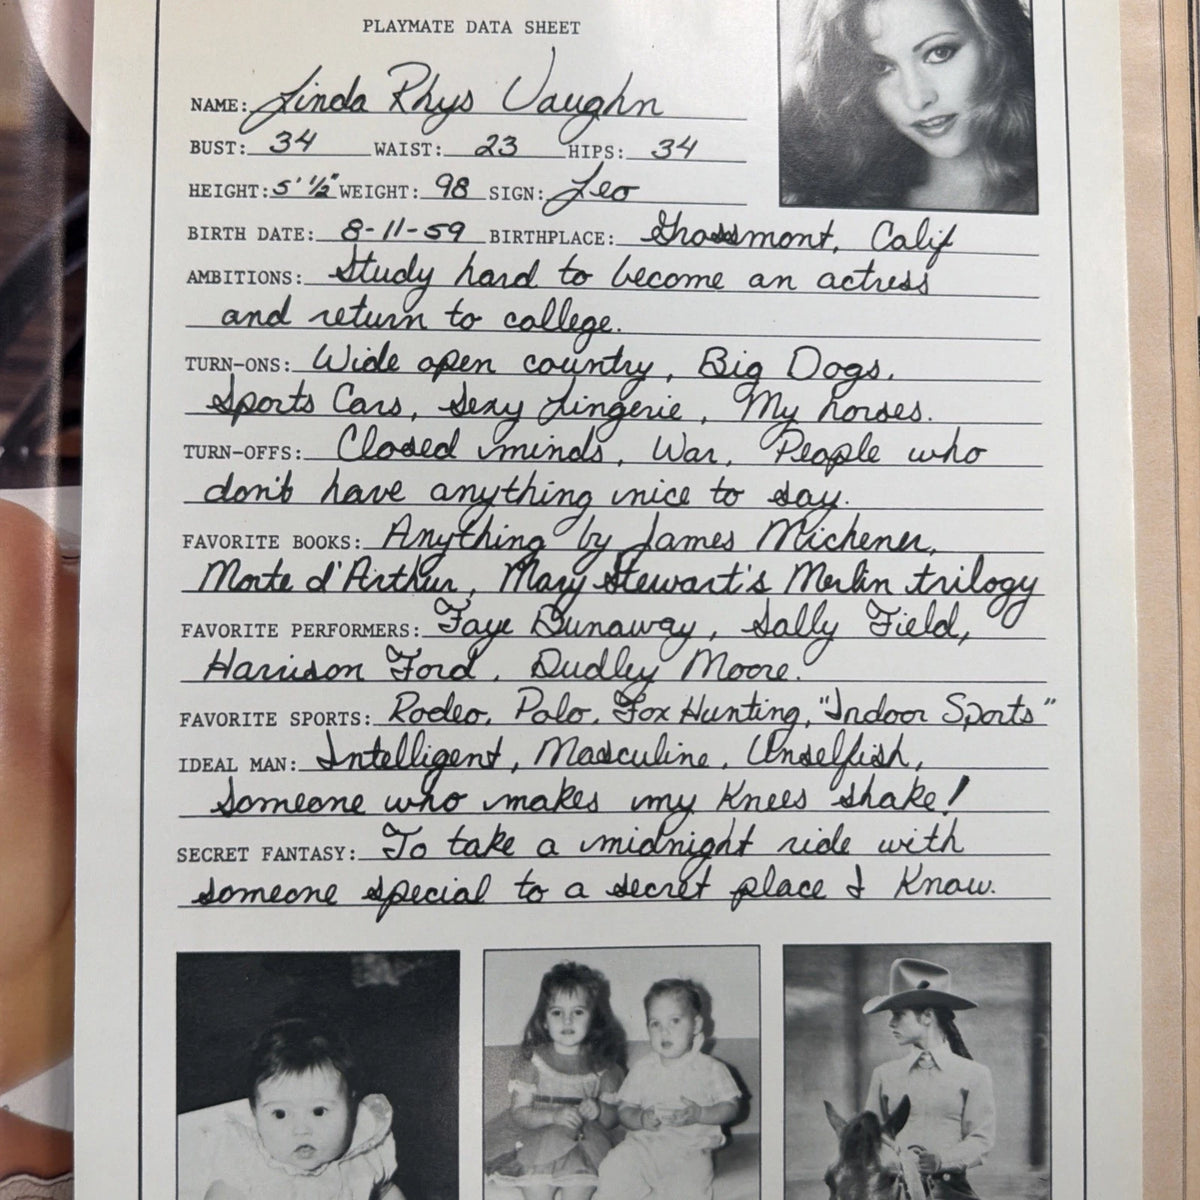 PLAYMATE DATA SHEET
NAME: Linda Rhys Vaughn
BUST: 34 WAIST: 23 HIPS: 34
HEIGHT: 5' ½" WEIGHT: 98 SIGN: Leo
BIRTH DATE: 8-11-59 BIRTHPLACE: Grossmont, Calif
AMBITIONS: Study hard to become an actress
and return to college.
TURN-ONS: Wide open country, Big Dogs,
Sports Cars, Sexy Lingerie, My horses.
TURN-OFFS: Closed minds, War, People who
don't have anything nice to say.
FAVORITE BOOKS: Anything by James Michener,
Morte d'Arthur, Mary Stewart's Merlin trilogy
FAVORITE PERFORMERS: Faye Dunaway, Sally Field,
Harrison Ford, Dudley Moore.
FAVORITE SPORTS: Rodeo, Polo, Fox Hunting, "Indoor Sports"
IDEAL MAN: Intelligent, Masculine, Unselfish,
Someone who makes my Knees shake!
SECRET FANTASY: To take a midnight ride with
someone special to a secret place I Know.